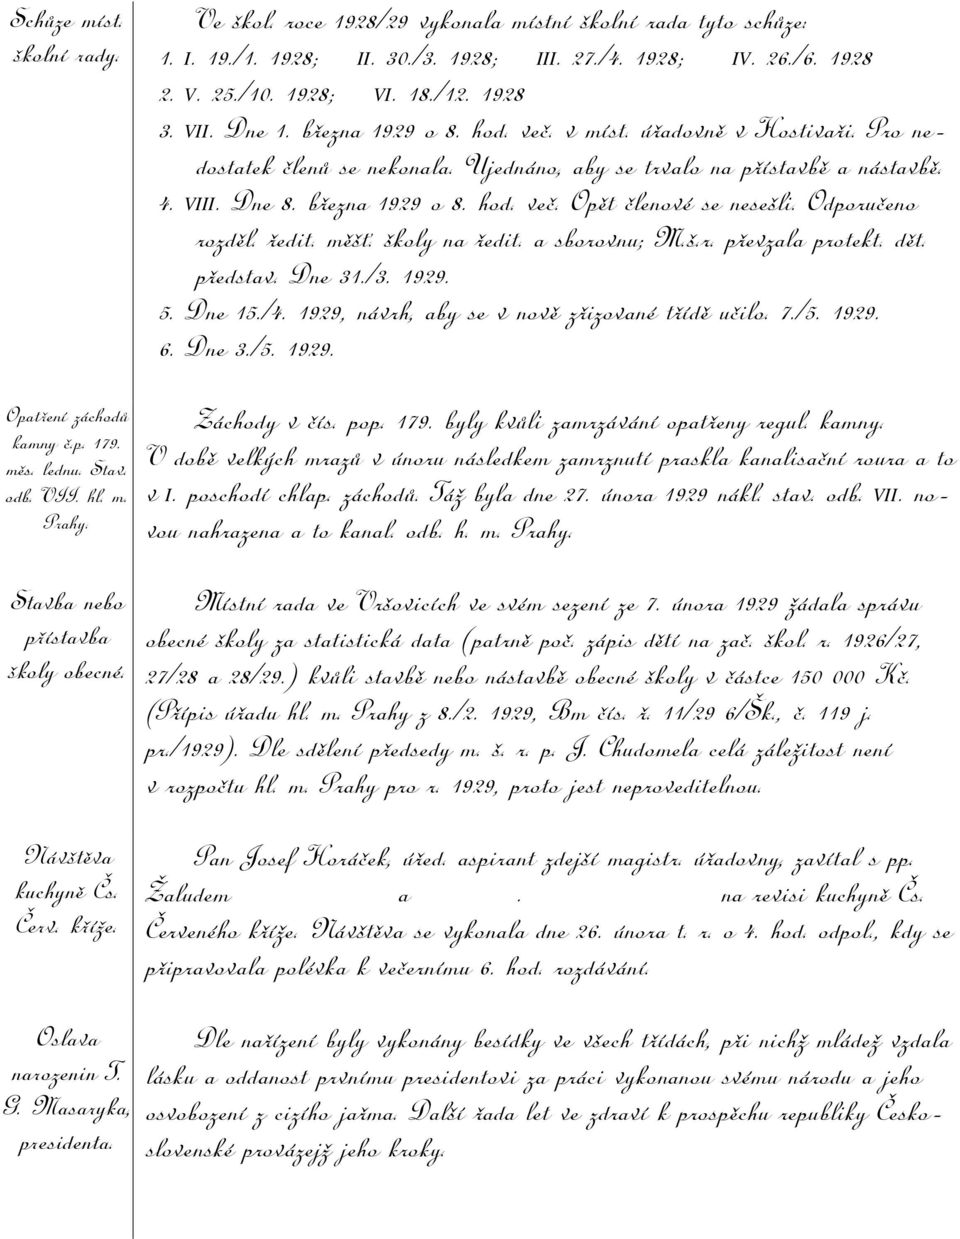 Schůze míst.
školní rady.
Ve škol. roce 1928/29 vykonala místní školní rada tyto schůze:
1. I. 19./1. 1928; II. 30./3. 1928; III. 27./4. 1928; IV. 26./6. 1928
2. V. 25./10. 1928; VI. 18./12. 1928
3. VII. Dne 1. března 1929 o 8. hod. več. v míst. úřadovně v Hostivaři. Pro ne-
dostatek členů se nekonala. Ujednáno, aby se trvalo na přístavbě a nástavbě.
4. VIII. Dne 8. března 1929 o 8. hod. več. Opět členové se nesešli. Odporučeno
rozděl. ředit. měšť. školy na ředit. a sborovnu; M.š.r. převzala protekt. dět.
představ. Dne 31./3. 1929.
5. Dne 15./4. 1929, návrh, aby se v nově zřizované třídě učilo. 7./5. 1929.
6. Dne 3./5. 1929.
Opatření záchodů
kamny č.p. 179.
měs. lednu. Stav.
odb. VII. hl. m.
Prahy.
Záchody v čís. pop. 179. byly kvůli zamrzávání opatřeny regul. kamny.
V době velkých mrazů v únoru následkem zamrznutí praskla kanalisační roura a to
v I. poschodí chlap. záchodů. Táž byla dne 27. února 1929 nákl. stav. odb. VII. no-
vou nahrazena a to kanal. odb. h. m. Prahy.
Stavba nebo
přístavba
školy obecné.
Místní rada ve Vršovicích ve svém sezení ze 7. února 1929 žádala správu
obecné školy za statistická data (patrně poč. zápis dětí na zač. škol. r. 1926/27,
27/28 a 28/29.) kvůli stavbě nebo nástavbě obecné školy v částce 150 000 Kč.
(Přípis úřadu hl. m. Prahy z 8./2. 1929, Bm čís. ř. 11/29 6/Šk., č. 119 j.
pr./1929). Dle sdělení předsedy m. š. r. p. J. Chudomela celá záležitost není
v rozpočtu hl. m. Prahy pro r. 1929, proto jest neproveditelnou.
Návštěva
kuchyně Čs.
Červ. kříže.
Pan Josef Horáček, úřed. aspirant zdejší magistr. úřadovny, zavítal s pp.
Žaludem a . na revisi kuchyně Čs.
Červeného kříže. Návštěva se vykonala dne 26. února t. r. o 4. hod. odpol., kdy se
připravovala polévka k večernímu 6. hod. rozdávání.
Oslava
narozenin T.
G. Masaryka,
presidenta.
Dle nařízení byly vykonány besídky ve všech třídách, při nichž mládež vzdala
lásku a oddanost prvnímu presidentovi za práci vykonanou svému národu a jeho
osvobození z cizího jařma. Další řada let ve zdraví k prospěchu republiky Česko-
slovenské provázejž jeho kroky.